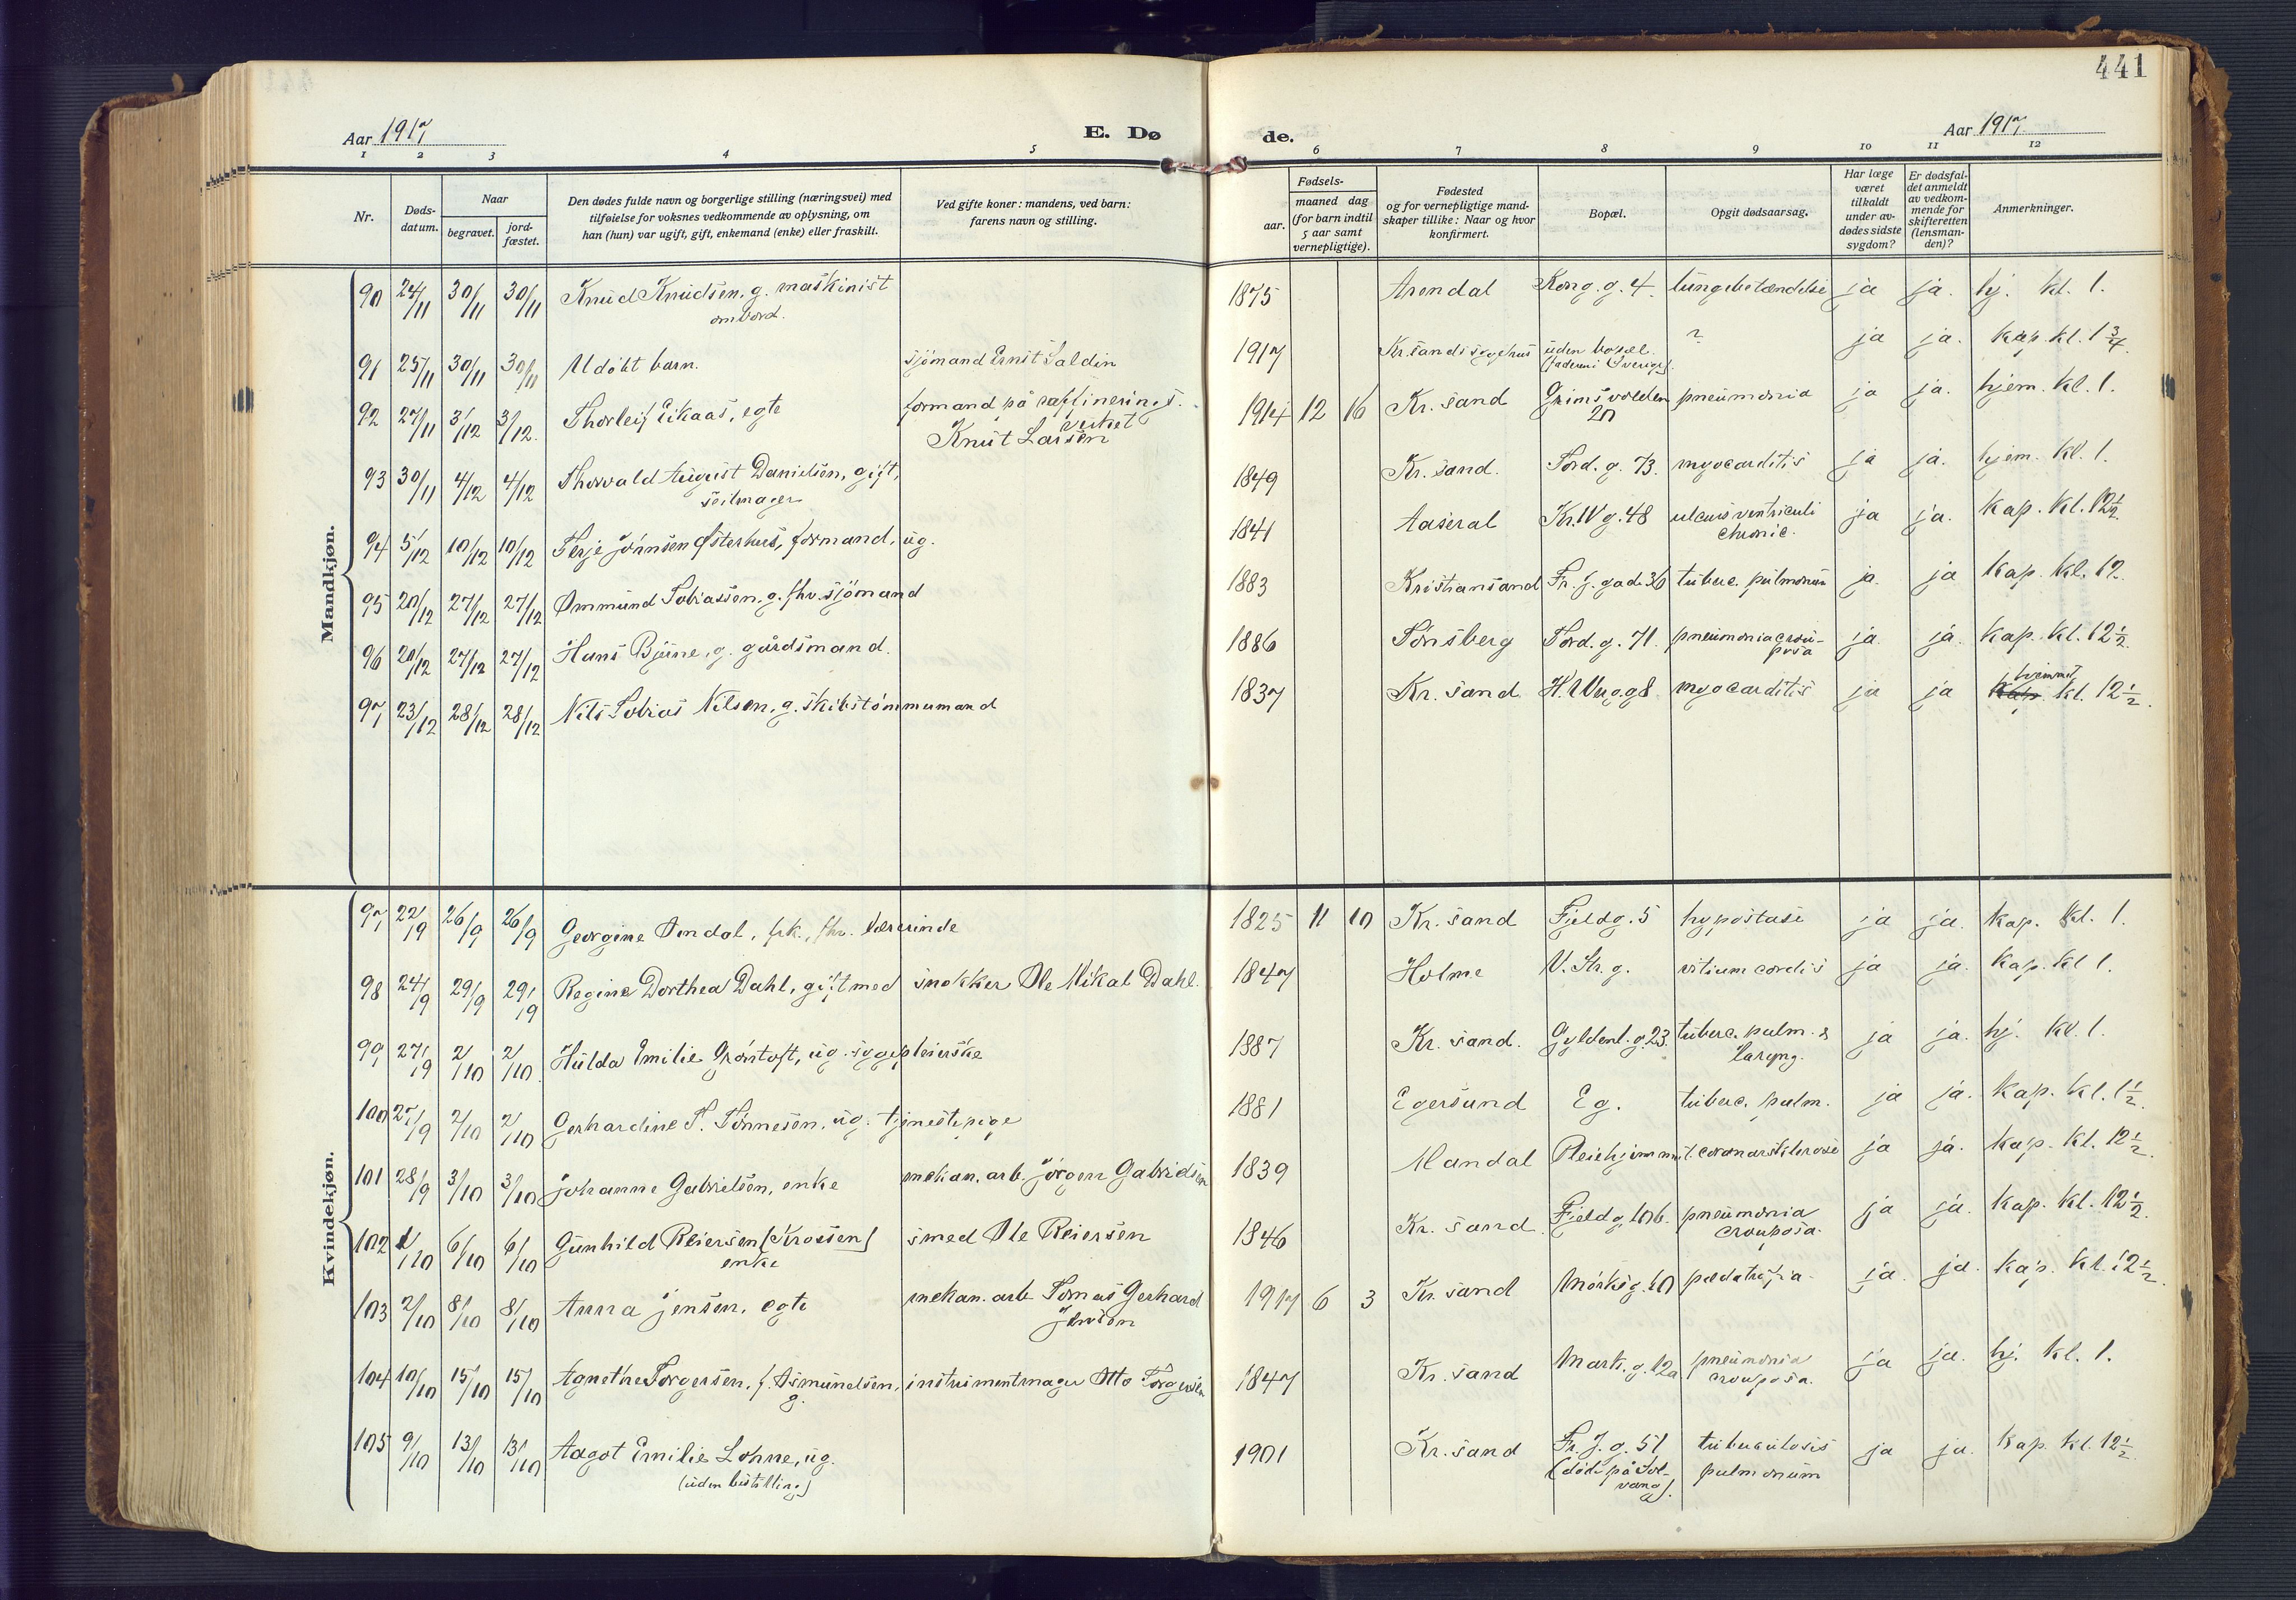 441
Aar 1917 E. Dø de. Aar 1917
1 2 3 4 5 6 7 8 9 10 11 12
Nr.
Døds-
datum.
Naar
begravet.
jord-
fæstet.
Den dødes fulde navn og borgerlige stilling (næringsvei) med
tilføielse for voksnes vedkommende av oplysning, om
han (hun) var ugift, gift, enkemand (enke) eller fraskilt.
Ved gifte koner: mandens, ved barn:
farens navn og stilling.
Fødsels-
aar.
maaned dag
(for barn indtil
5 aar samt
vernepligtige).
Fødested
og for vernepligtige mand-
skaper tillike: Naar og hvor
konfirmert.
Bopæl.
Opgit dødsaarsag.
Har læge
været
tilkaldt
under av-
dødes sidste
sygdom?
Er dødsfal-
det anmeldt
av vedkom-
mende for
skifteretten
(lensman-
den)?
Anmerkninger.
Mandkjøn.
90 24/11 30/11 30/11 Knud Knudsen, g. maskinist 1875 Arendal Kong. g. 4. lungebetændelse ja ja. hj. kl. 1.
ombord.
91 25/11 30/11 30/11 Udøbt barn. sjømand Ernst Saldin 1917 Kr.sands sygehus uden bopæl. ? ja ja. kap. kl. 1 3/4.
(faderen i Sverige).
92 27/11 3/12 3/12. Thorleif Eikaas, egte formand på raffinerings- 1914 12 16 Kr. sand Grimsvolden pneumonia ja ja. hjem. kl. 1.
verket 20
Knut Larsen
93 30/11 4/12 4/12 Thorvald August Danielsen, gift, 1849 Kr. sand. Tord. g. 73. myocarditis ja ja. hjem. kl. 1.
seilmager
94 5/12 10/12 10/12 Terje Jónnsen Østerhus, formand, ug. 1841 Aaseral Kr. IV g. 48 ulcus ventriculi ja ja. kap. kl. 12 1/2.
chronic.
95 20/12 27/12 27/12 Ommund Tobiassen, g. fhv. sjømand 1883 Kristiansand Fr. j. gade 36 tuberc. pulmonum ja. ja kap. kl. 12.
96 20/12 27/12 27/12 Hans Bjerne, g. gårdsmand. 1886 Tønsberg Tord. g. 71. pneumonia crou- ja. ja. kap. kl. 12 1/2.
posa
97 23/12 28/12 28/12 Nils Tobias Nilsen, g. skibstømmermand 1837 Kr. sand H. W.g. 98. myocarditis ja ja hjemmet kl. 12 1/2.
Kvindekjøn.
97 22/9 26/9 26/9 Georgine Omdal, frk., fhv. lærerinde 1825 11 10 Kr. sand Fjeldg. 5 hypostase ja ja. kap. kl. 1.
98 24/9 29/9 29/9 Regine Dorthea Dahl, gift med snekker Ole Mikal Dahl. 1847 Holme V. Str. g. vitium cordis ja ja. kap. kl 1.
99 27/9 2/10 2/10 Hulda Emilie Grøntoft, ug. sygepleierske 1887 Kr. sand. Gyldenl. g. 23. tuberc. pulm. & ja ja. hj. kl. 1.
laryng.
100 27/9 2/10 2/10 Gerhardine T. Tønnesen, ug. tjenestepige 1881 Egersund Eg. tuberc. pulm. ja ja. kap. kl. 1 1/2.
101 28/9 3/10 3/10 Johanne Gabrielsen, enke mekan. arb. Jørgen Gabrielsen 1839 Mandal Pleiehjemmet coronarsklerose ja ja. kap. kl. 12 1/2.
102 1/10 6/10 6/10 Gunhild Reiersen (Krossen) smed Ole Reiersen 1846 Kr. sand Fjeldg. 10b. pneumonia ja ja. kap. kl. 12 1/2.
enke crouposa.
103 2/10 8/10 8/10 Anna Jensen, egte mekan. arb. Tomas Gerhard 1917 6 3 Kr. sand Mørksg. 10 pædatrofia. ja. ja. kap. kl. 12 1/2.
Jensen
104 10/10 15/10 15/10 Agnethe Torgersen, f. Asmundsen, instrumentmager Otto Torgersen 1847 Kr. sand Mark. g. 12a pneumonia ja ja. hj. kl. 1.
g. crouposa.
105 9/10 13/10 13/10 Aagot Emilie Lohne, ug. 1901 Kr. sand Fr. J. g. 51 tuberculosis ja ja. kap. kl. 12 1/2.
(uden bestilling) (døde på Sol- pulmonum
vang).